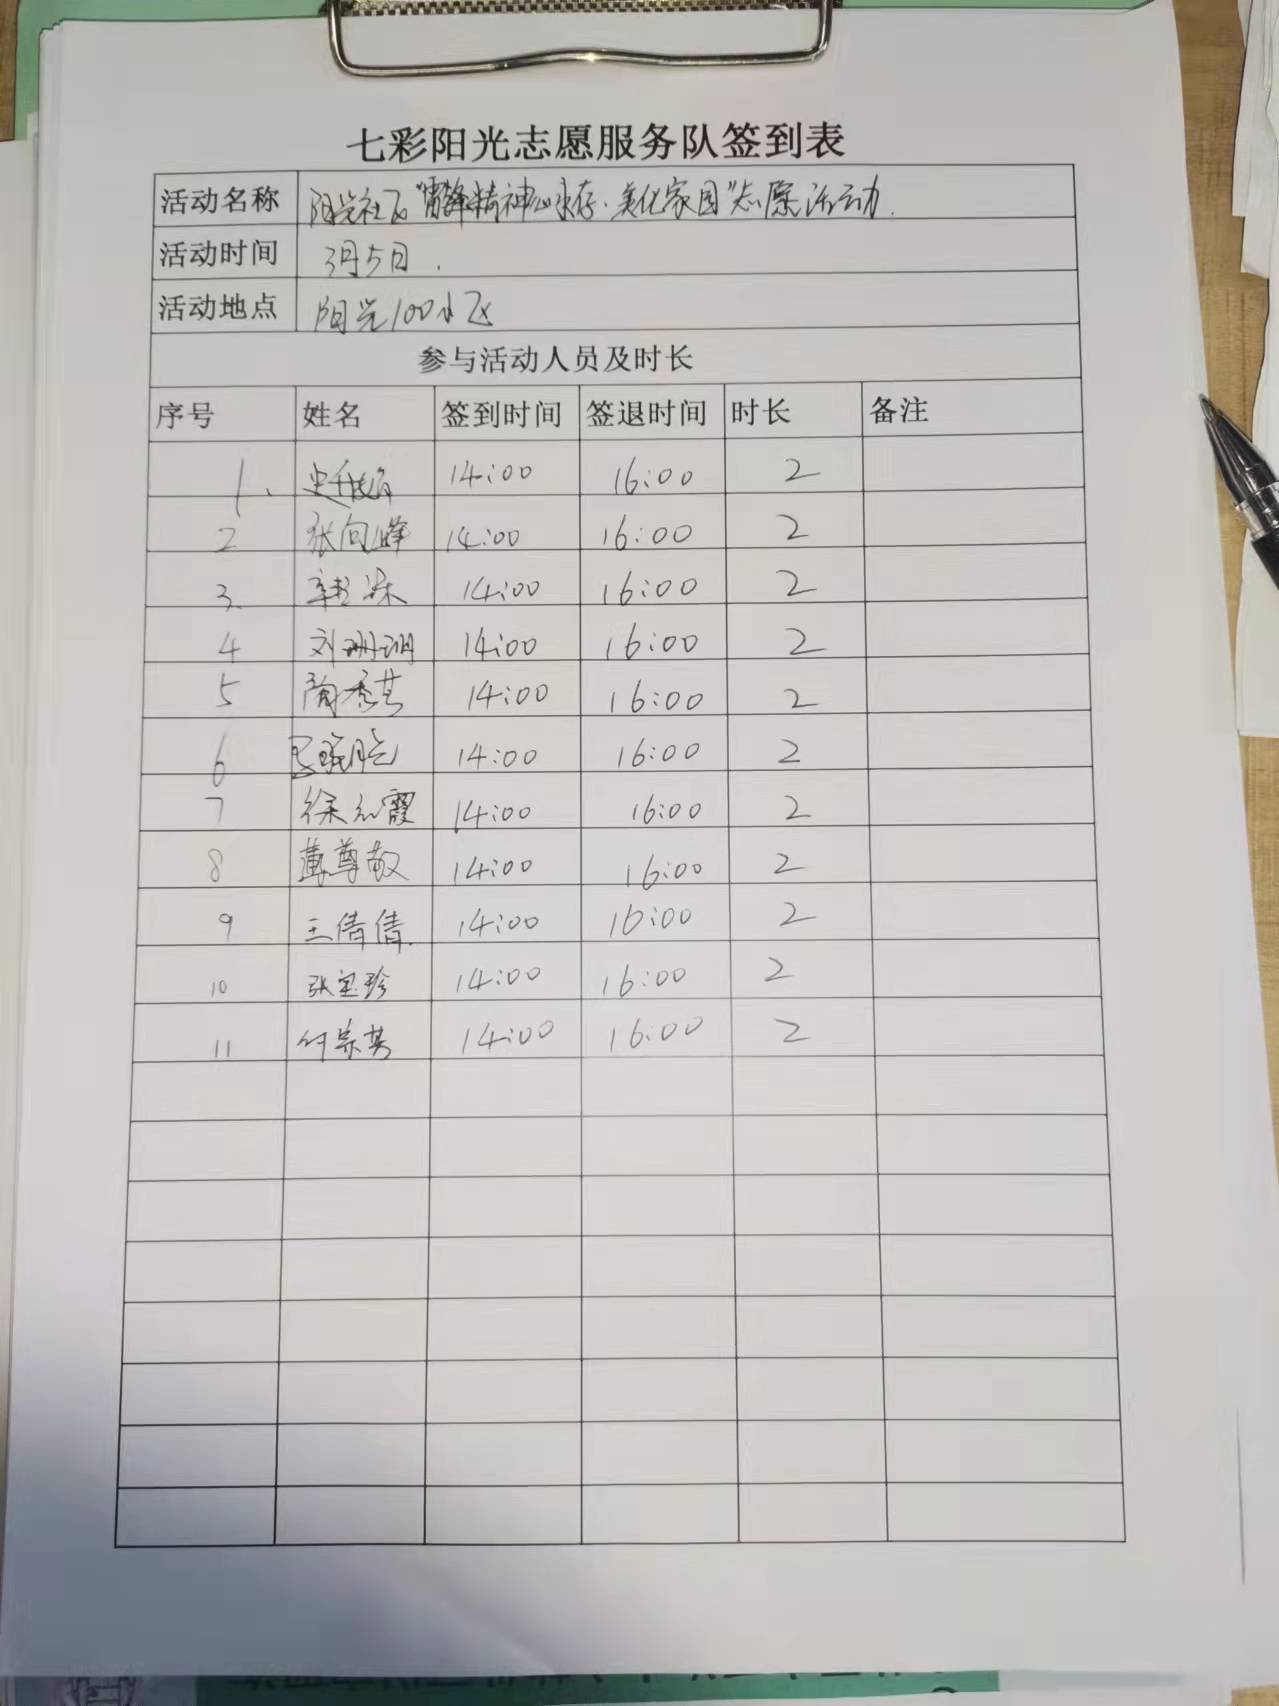 七彩阳光志愿服务队签到表
活动名称 阳光社区"雷锋精神心永存·美化家园"志愿活动.
活动时间 3月5日.
活动地点 阳光100小区
参与活动人员及时长
序号 姓名 签到时间 签退时间 时长 备注
1、 14:00 16:00 2
2 张向峰 14:00 16:00 2
3. 韩 14:00 16:00 2
4 刘珊珊 14:00 16:00 2
5 陶秀芝 14:00 16:00 2
6 14:00 16:00 2
7 徐红霞 14:00 16:00 2
8 黄尊敬 14:00 16:00 2
9 王倩倩. 14:00 16:00 2
10 张宝珍 14:00 16:00 2
11 付崇英 14:00 16:00 2